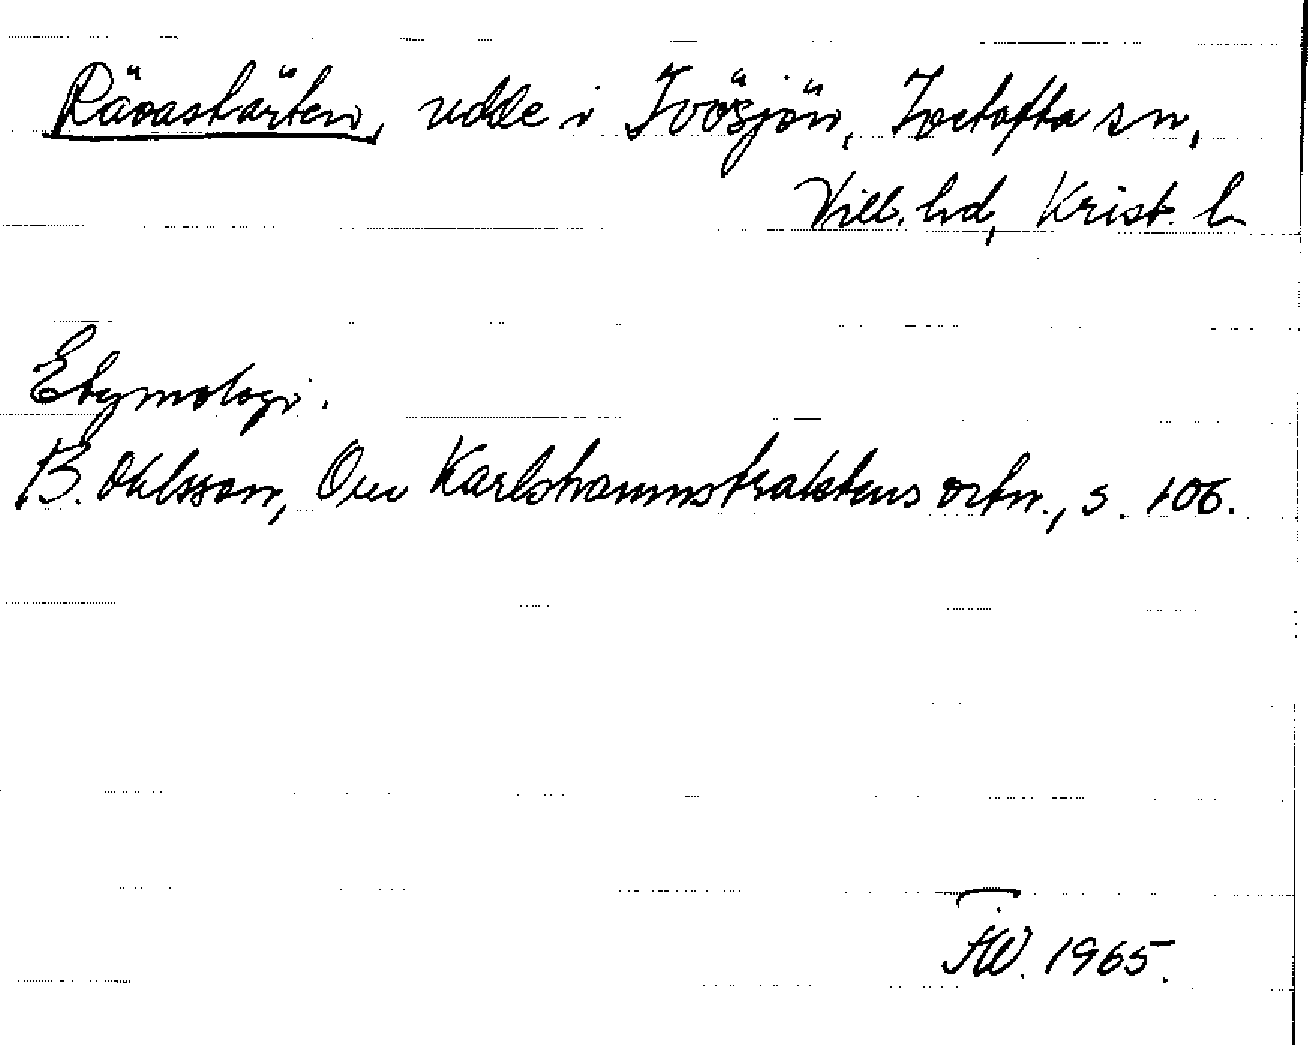 Rävastärten, udde i Ivösjön, Ivetofta sn,
Vill. hd, Krist. l.
Etymologi.
B. Ohlsson, Om Karlshamnstraktens ortn., s. 106.
1965.